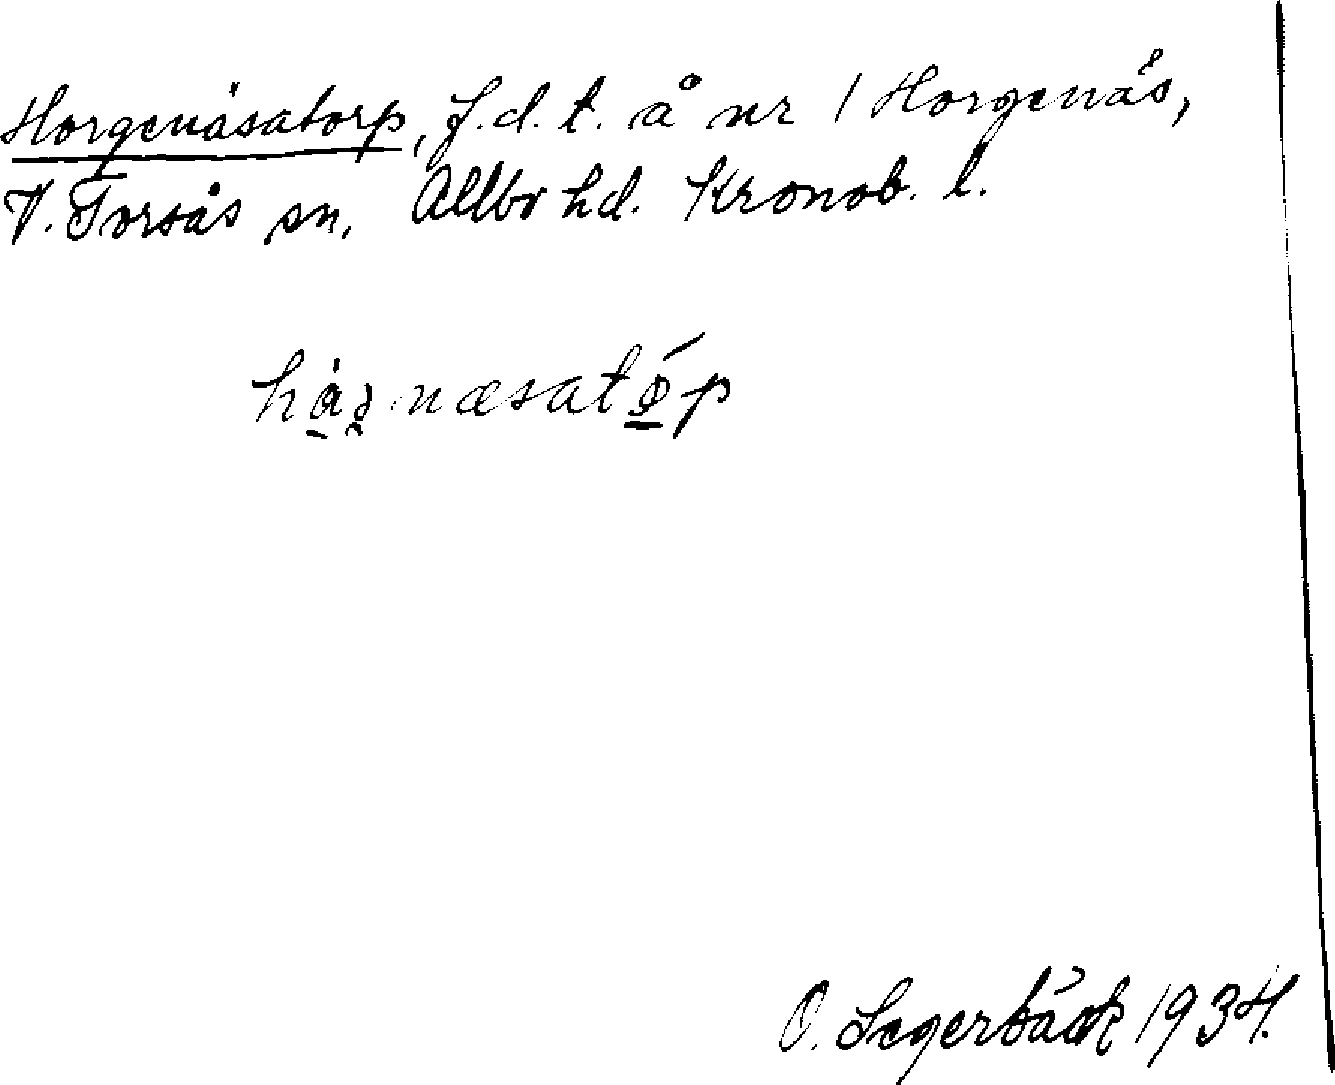 Horgenäsatorp, f.d.t. å nr 1 Horgenäs,
V. Torsås sn, Allbo hd. Kronob. l.
O. Segerbäck 1934.